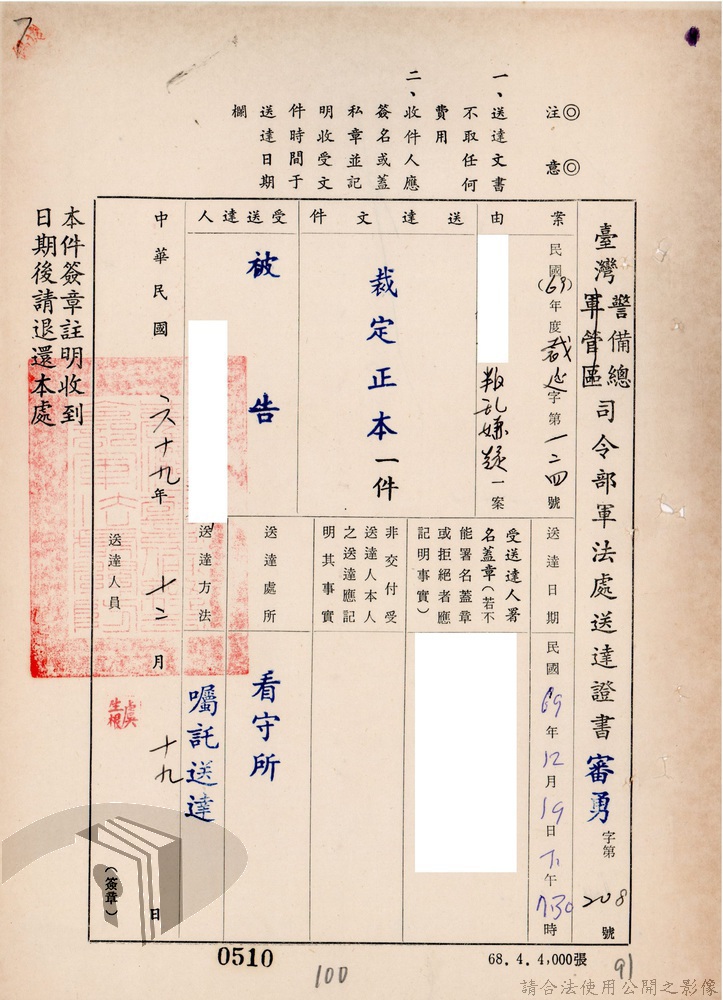 7
注意
一、送達文書
不取任何
費用
二、收件人應
簽名或蓋
私章並記
明收受文
件時間于
送達日期
欄
臺灣警備總軍管區司令部軍法處送達證書審勇字第208號
案由
民國(69)年度裁延字第一二四號
叛乱嫌疑一案
送達文件
裁定正本一件
受送達人
被告
送達日期
民國69年12月19日下午7:30時
受送達人署
名蓋章(若不
能署名蓋章
或拒絕者應
記明事實)
非交付受
送達人本人
之送達應記
明其事實
送達處所
看守所
送達方法
囑託送達
中華民國六十九年十二月十九日
送達人員
虞生根
(簽章)
本件簽章註明收到
日期後請退還本處
0510
68.4.4,000張
100
91
請合法使用公開之影像